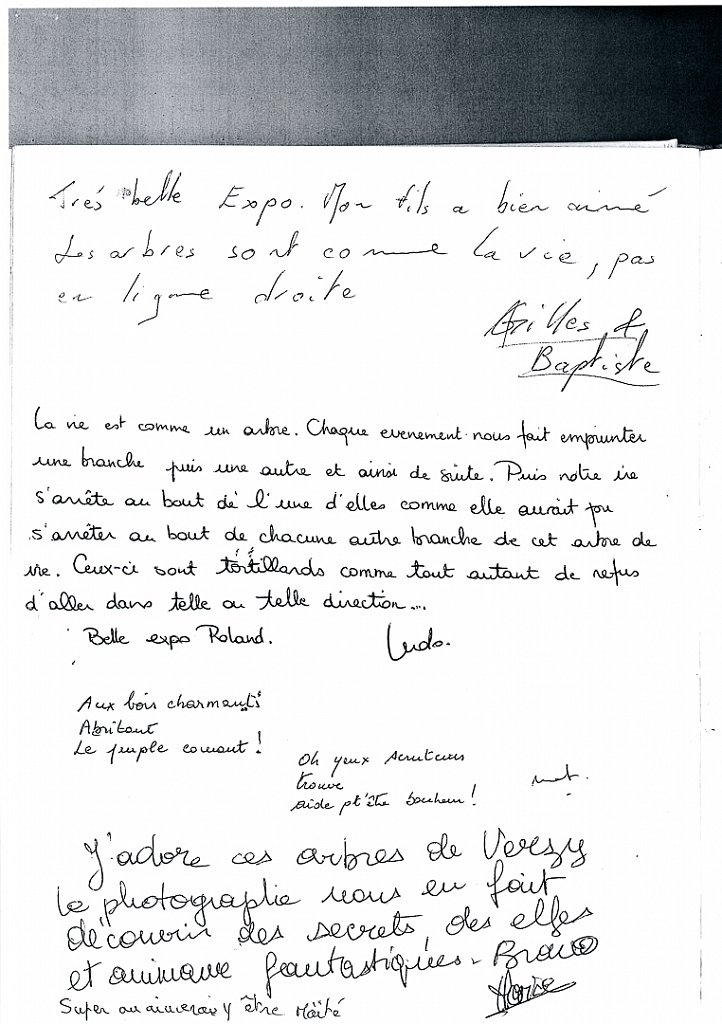 Très belle Expo. Mon fils a bien aimé
Les arbres sont comme la vie, pas
en ligne droite
Gilles &
Baptiste
La vie est comme un arbre. Chaque evenement nous fait emprunter
une branche puis une autre et ainsi de suite. Puis notre vie
s'arrête au bout de l'une d'elles comme elle aurait pu
s'arrêter au bout de chacune autre branche de cet arbre de
vie. Ceux-ci sont tortillards comme tout autant de refus
d'aller dans telle ou telle direction...
Belle expo Roland.
Ludo.
Aux bois charmants
Abritant
Le peuple courant !
Oh yeux scruteurs
trouve
aide pt'être bonheur !
J'adore ces arbres de Verzy
la photographie nous en fait
découvrir des secrets, des elfes
et animaux fantastiques. Bravo
Super on aimerais y être Maïté